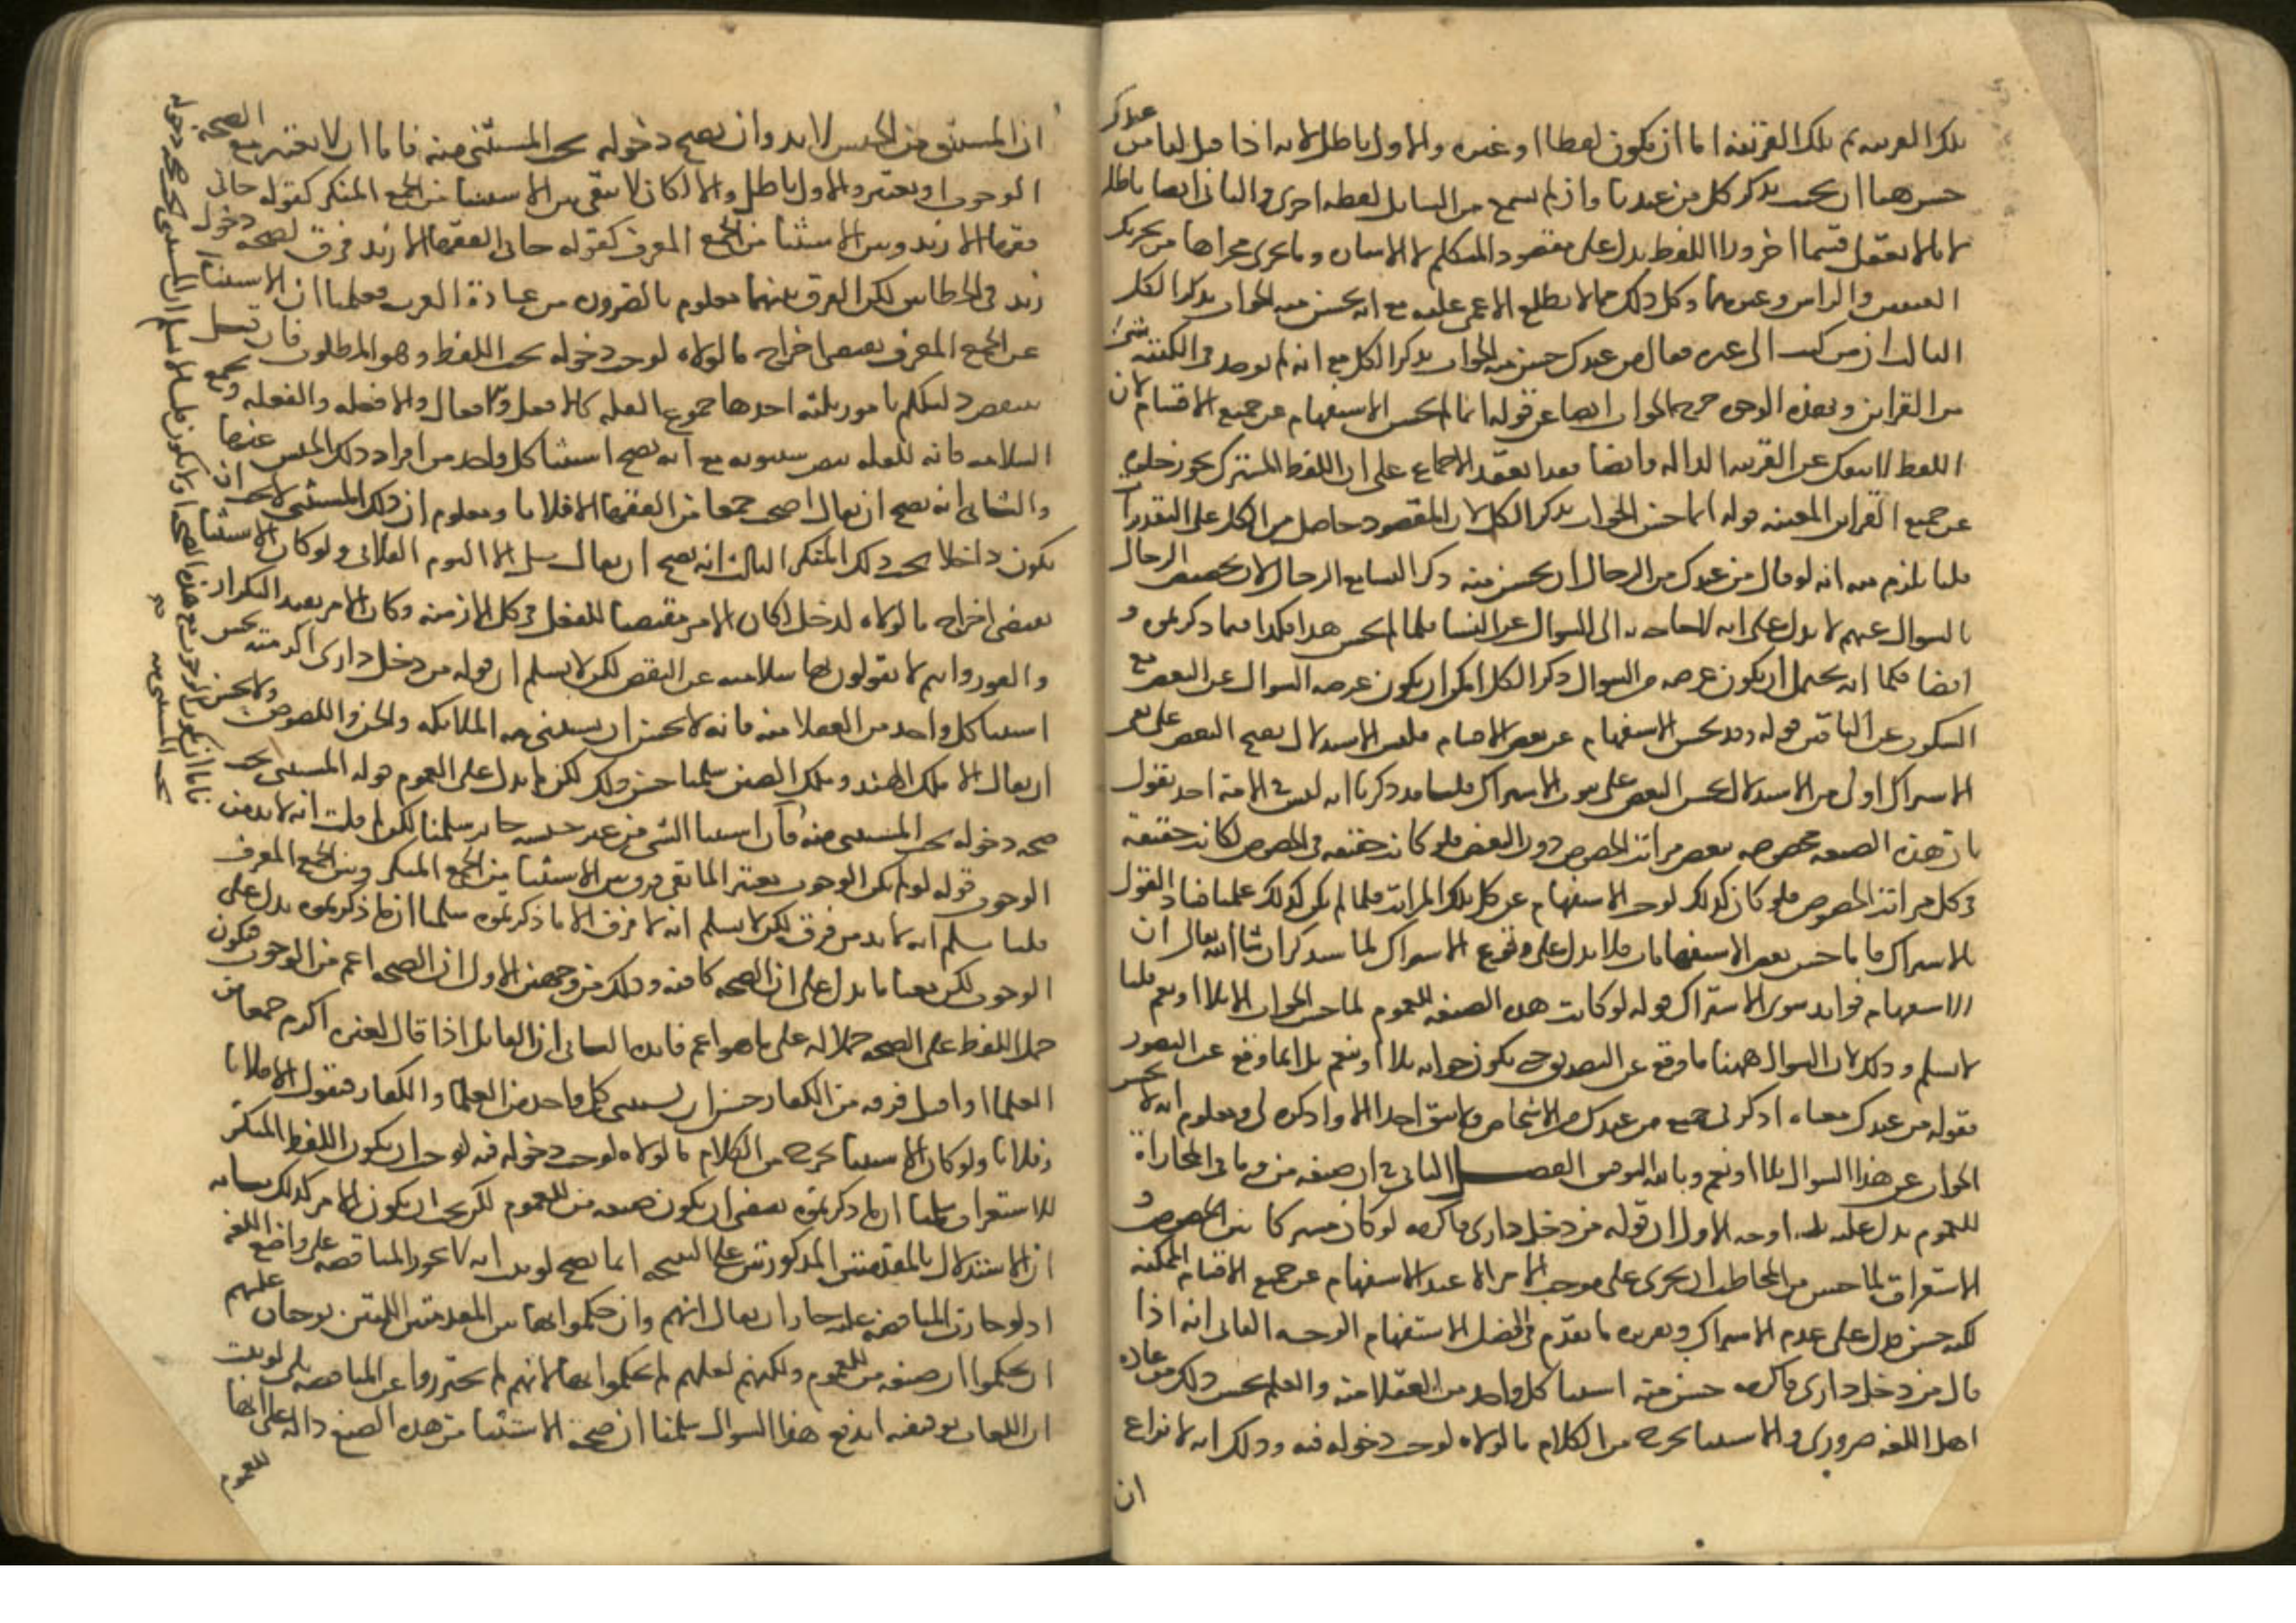 تلك القرينة ثم تلك القرينة اما ان يكون لفظا او غيره والاول باطل لانه اذا قيل لنا من عندك
حسن هنا ان يجيب بذكر كل من عندنا وان لم نسمع من السايل لفظة اخرى والثاني ايضا باطل
لانا لا نعقل قسما اخر وراء اللفظ يدل على مقصود المتكلم الا الاشارة وما يجرى مجراها من تحريك
العين والراس وغيرهما وكل ذلك مما لا يطلع الاعمى عليه مع انه يحسن منه الجواب بذكر الكل
الثالث ان من كتب الى غيره فقال من عندك حسن منه الجواب بذكر الكل مع انه لم يوجد في الكتبة شئ
من القراين وبهذه الوجوه خرج الجواب ايضا عن قوله انما لم يحسن الاستفهام عن جميع الاقسام لان
اللفظ لا ينفك عن القرينة الدالة وايضا فقد انعقد الاجماع على ان اللفظ المشترك يجوز خلوه
عن جميع القراين المعينة قوله انما حسن الجواب بذكر الكل لان المقصود حاصل من الكل على التقديرات
قلنا يلزم منه انه لو قال من عندك من الرجال ان يحسن منه ذكر النسا مع الرجال لان تخصيص الرجال
بالسوال عنهم لا يدل على انه لا حاجة به الى السوال عن النسا فلما لم يحسن هذا فكذا فيما ذكرتموه و
ايضا فكما انه يحتمل ان يكون غرضه من السوال ذكر الكل امكن ان يكون غرضه السوال عن البعض مع
السكوت عن الباقين قوله وقد يحسن الاستفهام عن بعض الاقسام فليس الاستدلال بقبح البعض على نفى
الاشتراك اولى من الاستدلال بحسن البعض على ثبوت الاشتراك قلنا قد ذكرنا انه ليس في الامة احد يقول
بان هذه الصيغة مخصوصة ببعض مراتب الخصوص دون البعض فلو كانت حقيقة في الخصوص لكانت حقيقة
في كل مراتب الخصوص فلو كان كذلك لوجب الاستفهام عن كل تلك المراتب فلما لم يكن كذلك علمنا فساد القول
بالاشتراك فاما حسن بعض الاستفهامات فلا يدل على وقوع الاشتراك لما سنذكر ان شا الله تعالى ان
للاستفهام فوايد سوى الاشتراك قوله لو كانت هذه الصيغة للعموم لما حسن الجواب الا بلا او نعم قلنا
لا نسلم وذلك لان السوال ههنا ما وقع عن التصديق حتى يكون جوابه بلا او بنعم بل انما وقع عن التصور
فقوله من عندك معناه اذكر لى جميع من عندك من الاشخاص ولا تبق احدا الا واذكره لى ومعلوم انه لا يحسن
الجواب عن هذا السوال بلا او نعم وبالله التوفيق الفصل الثاني في ان صيغة من وما في المجازاة
للعموم يدل عليه ثلثة اوجه الاول ان قوله من دخل دارى فاكرمه لو كان مشتركا بين الخصوص و
الاستغراق لما حسن من المخاطب ان يجرى على موجب الامر الا عند الاستفهام عن جميع الاقسام الممكنة
لكنه حسن فدل على عدم الاشتراك وتقريره ما تقدم في فصل الاستفهام الوجه الثانى انه اذا
قال من دخل دارى فاكرمه حسن منه استثنا كل واحد من العقلا منه والعلم بحسن ذلك من عادة
اهل اللغة ضرورى والاستثنا يخرج من الكلام ما لولاه لوجب دخوله فيه وذلك انه لا نزاع
ان
ان المستثنى من الجنس لا بد وان يصح دخوله تحت المستثنى منه فاما ان لا يعتبر مع الصحة
الوجوب او يعتبر والاول باطل والا لكان لا يبقى بين الاستثنا من الجمع المنكر كقوله جانى
فقها الا زيد وبين الاستثنا من الجمع المعرف كقوله جانى الفقها الا زيد فرق لصحة دخول
زيد في الخطابين لكن الفرق بينهما معلوم بالضرورة من عادة العرب فعلمنا ان الاستثنا
عن الجمع المعرف يقتضى اخراج ما لولاه لوجب دخوله تحت اللفظ وهو المطلوب فان قيل
ينتقض دليلكم بامور ثلثة احدها جموع القلة كالافعل والافعال والافعلة والفعلة وجمع
السلامة فانه للقلة بنص سيبويه مع انه يصح استثنا كل واحد من افراد ذلك الجنس عنها
والثانى انه يصح ان يقال اصحب جمعا من الفقها الا فلانا ومعلوم ان ذلك المستثنى لا يجب ان
يكون داخلا تحت ذلك المنكر الثالث انه يصح ان يقال صل الا اليوم الفلانى ولو كان الاستثنا
يقتضى اخراج ما لولاه لدخل لكان الامر مقتضيا للفعل في كل الازمنة وكان الامر يفيد التكرار
والفور وانتم لا تقولون بهما سلامته عن النقض لكن لا نسلم ان قوله من دخل دارى اكرمته يحسن
استثنا كل واحد من العقلا منه فانه لا يحسن ان يستثنى منه الملائكة والجن واللصوص ولا يحسن
ان يقال الا ملك الهند وملك الصين سلمنا حسن ذلك لكن لم يدل على العموم قوله المستثنى يجب
صحة دخوله تحت المستثنى منه فان استثنا الشى من غير جنسه جايز سلمنا لكن لم قلت انه لا بد من
الوجوب قوله لو لم يكن الوجوب معتبرا لما بقى فرق بين الاستثنا من الجمع المنكر وبين الجمع المعرف
قلنا نسلم انه لا بد من فرق لكن لا نسلم انه لا فرق الا ما ذكرتموه سلمنا ان ما ذكرتموه يدل على
الوجوب لكن معنا ما يدل على ان الصحة كافية وذلك من وجهين الاول ان الصحة اعم من الوجوب فيكون
حمل اللفظ على الصحة حملا له على ما هو اعم فايدة الثانى ان القايل اذا قال لغيره اكرم جمعا من
العلما او اقتل فرقة من الكفار حسن ان يستثنى كل واحد من العلما والكفار فيقول الا فلانا
وفلانا ولو كان الاستثنا يخرج من الكلام ما لولاه لوجب دخوله فيه لوجب ان يكون اللفظ المنكر
للاستغراق سلمنا ان ما ذكرتموه يقتضى ان يكون صيغة من للعموم لكن يجب ان يكون الامر كذلك بيانه
ان الاستدلال بالمقدمتين المذكورتين على النتيجة انما يصح لو ثبت انه لا يجوز المناقضة على واضع اللغة
اذ لو جازت المناقضة عليه جاز ان يقال انهم وان حكموا بهاتين المقدمتين اللتين توجبان عليهم
ان يحكموا ان صيغة من للعموم ولكنهم لعلهم لم يحكموا بها لانهم لم يحترزوا عن المناقضة بلى لو ثبت
ان اللغات توقيفية اندفع هذا السوال سلمنا ان صحة الاستثنا من هذه الصيغ دالة على انها
للعموم